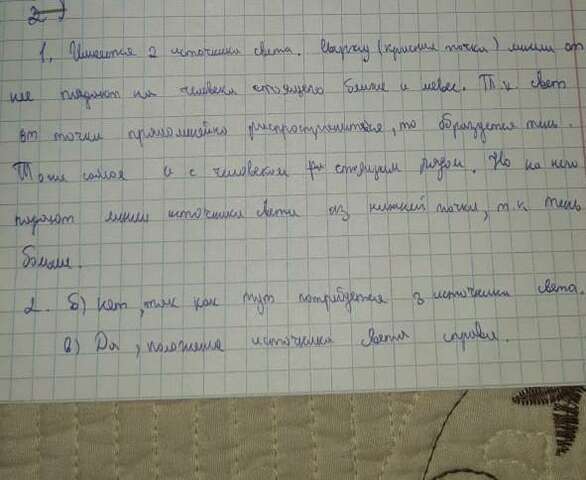 2)
1. Имеется 2 источника света. Сверху (красная точка) линии от
нее падают на человека стоящего ближе и левее. Т.к. свет
от точки прямолинейно распространяется, то образуется тень.
Тоже самое и с человеком стоящим рядом. Но на него
падают линии источника света из нижней точки, т.к тень
больше.
2. б) Нет, так как тут потребуется 3 источника света.
в) Да, положение источника света справа.